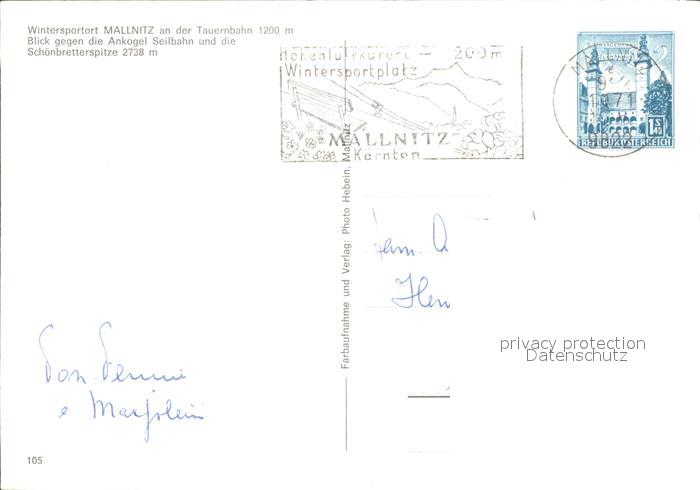 Wintersportort MALLNITZ an der Tauernbahn 1200 m
Blick gegen die Ankogel Seilbahn und die
Schönbretterspitze 2738 m
Höhenluftkurort – 1200m
Wintersportplatz
MALLNITZ
Kärnten
MALLNITZ
9822
REPUBLIK ÖSTERREICH
Farbaufnahme und Verlag: Photo Hebein, Mallnitz
fam.
privacy protection
Datenschutz
Marjolein
105